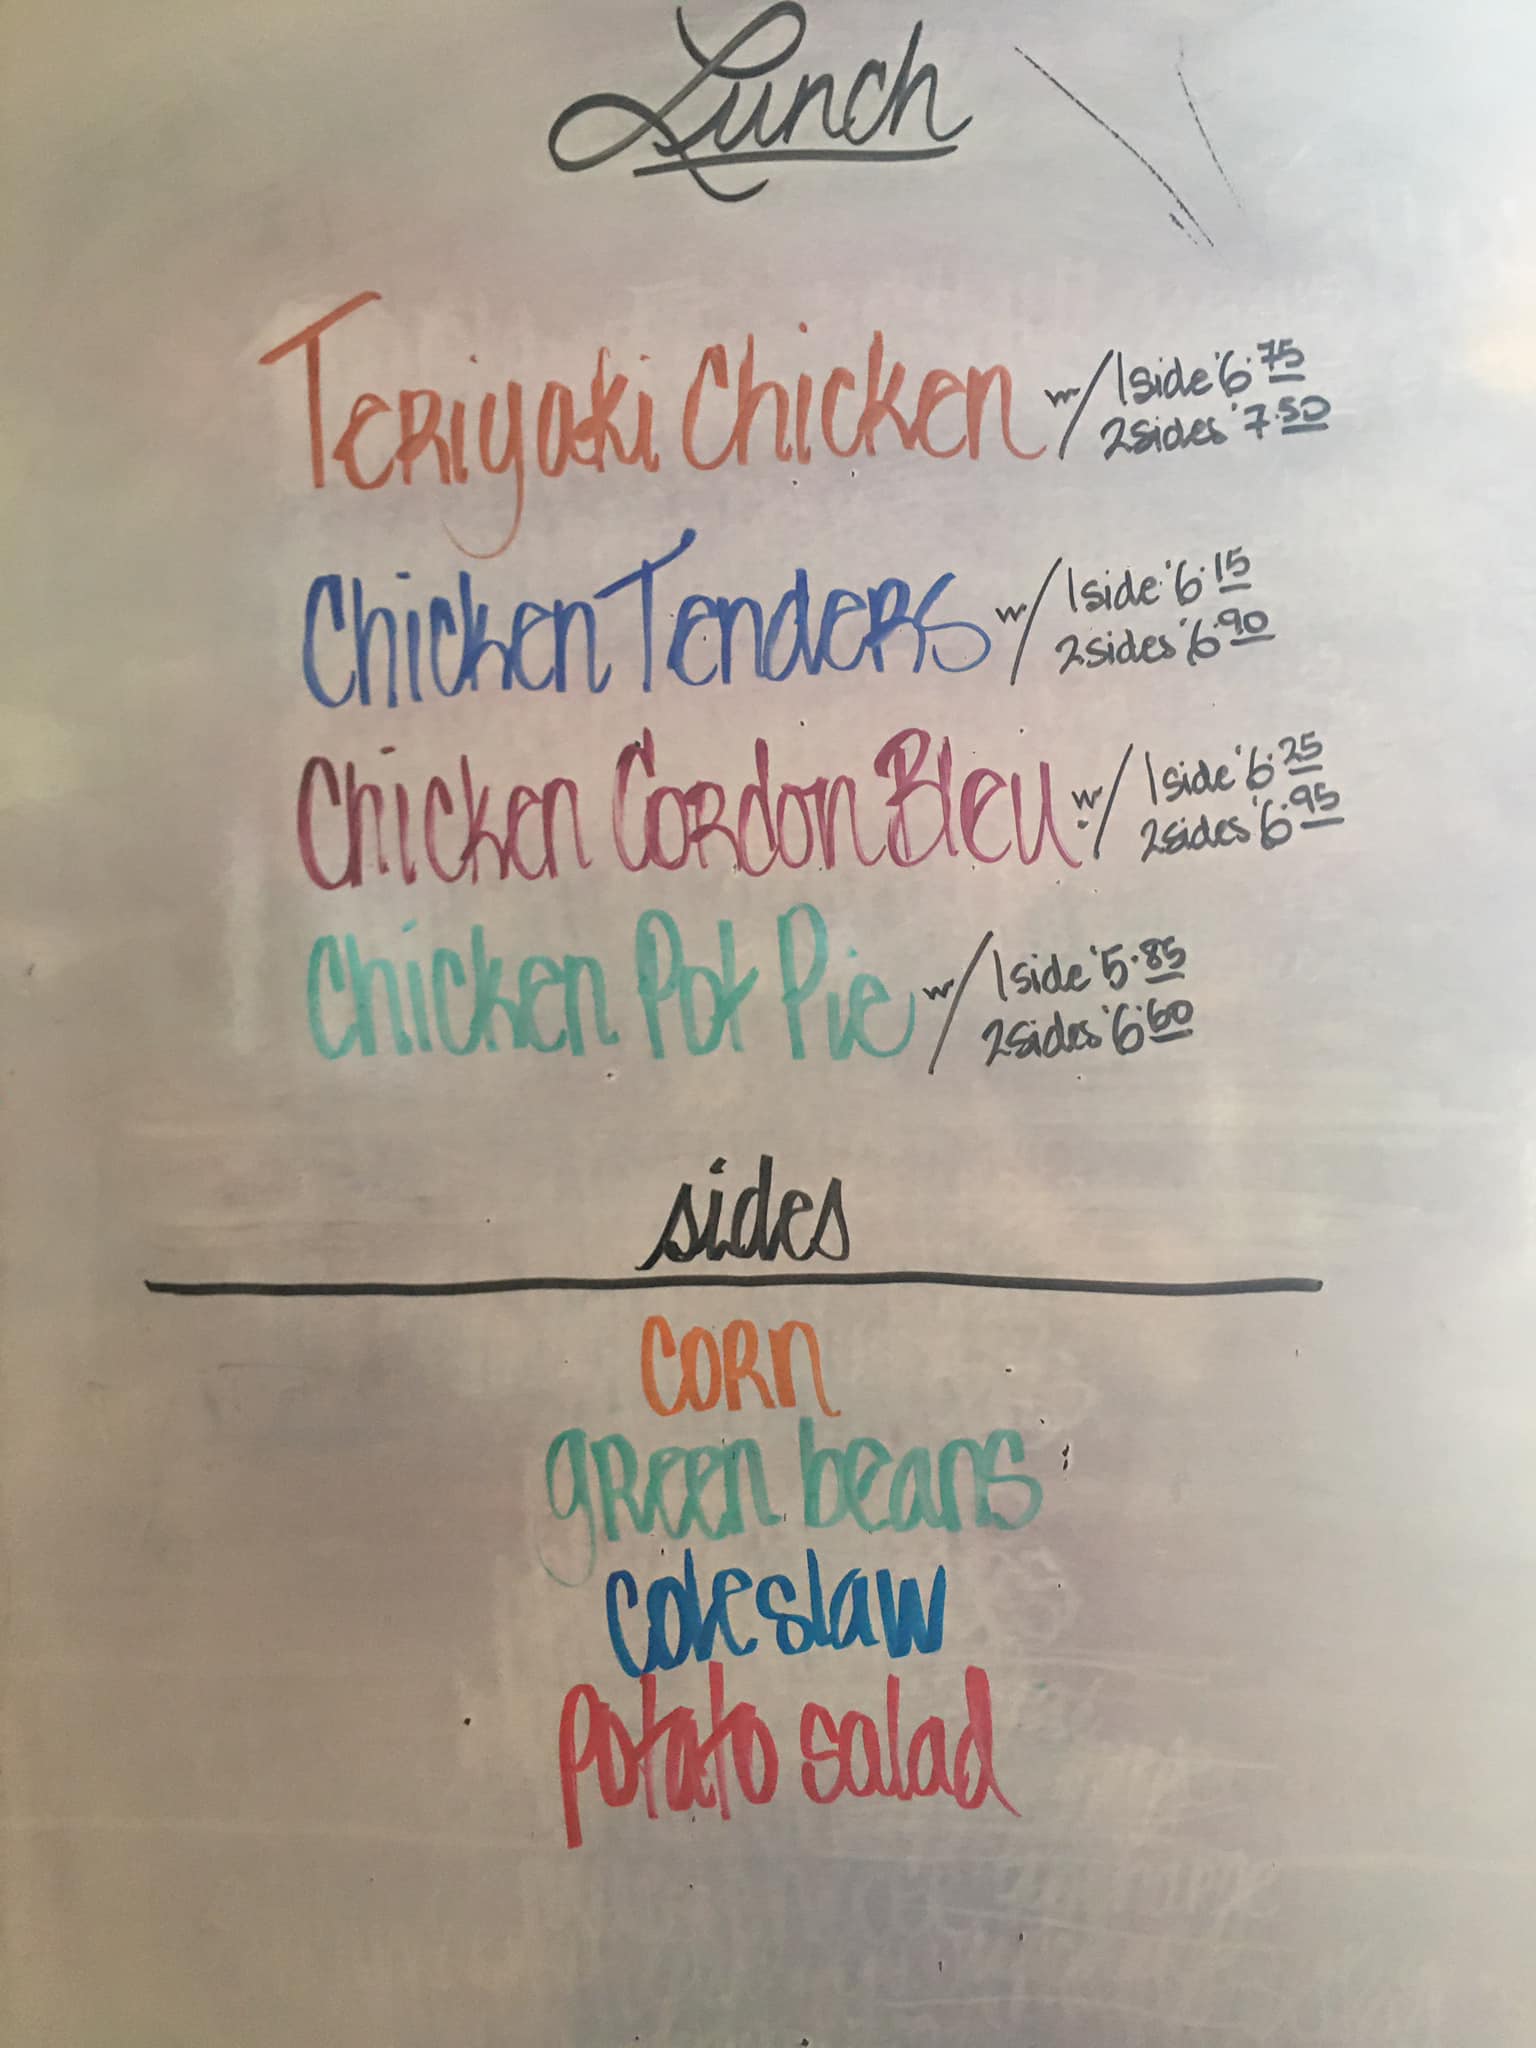 Lunch
Teriyaki Chicken w/ 1 side 6.75
2 sides 7.50
Chicken Tenders w/ 1 side 6.15
2 sides 6.90
Chicken Cordon Bleu w/ 1 side 6.25
2 sides 6.95
Chicken Pot Pie w/ 1 side 5.85
2 sides 6.60
sides
corn
green beans
coleslaw
potato salad